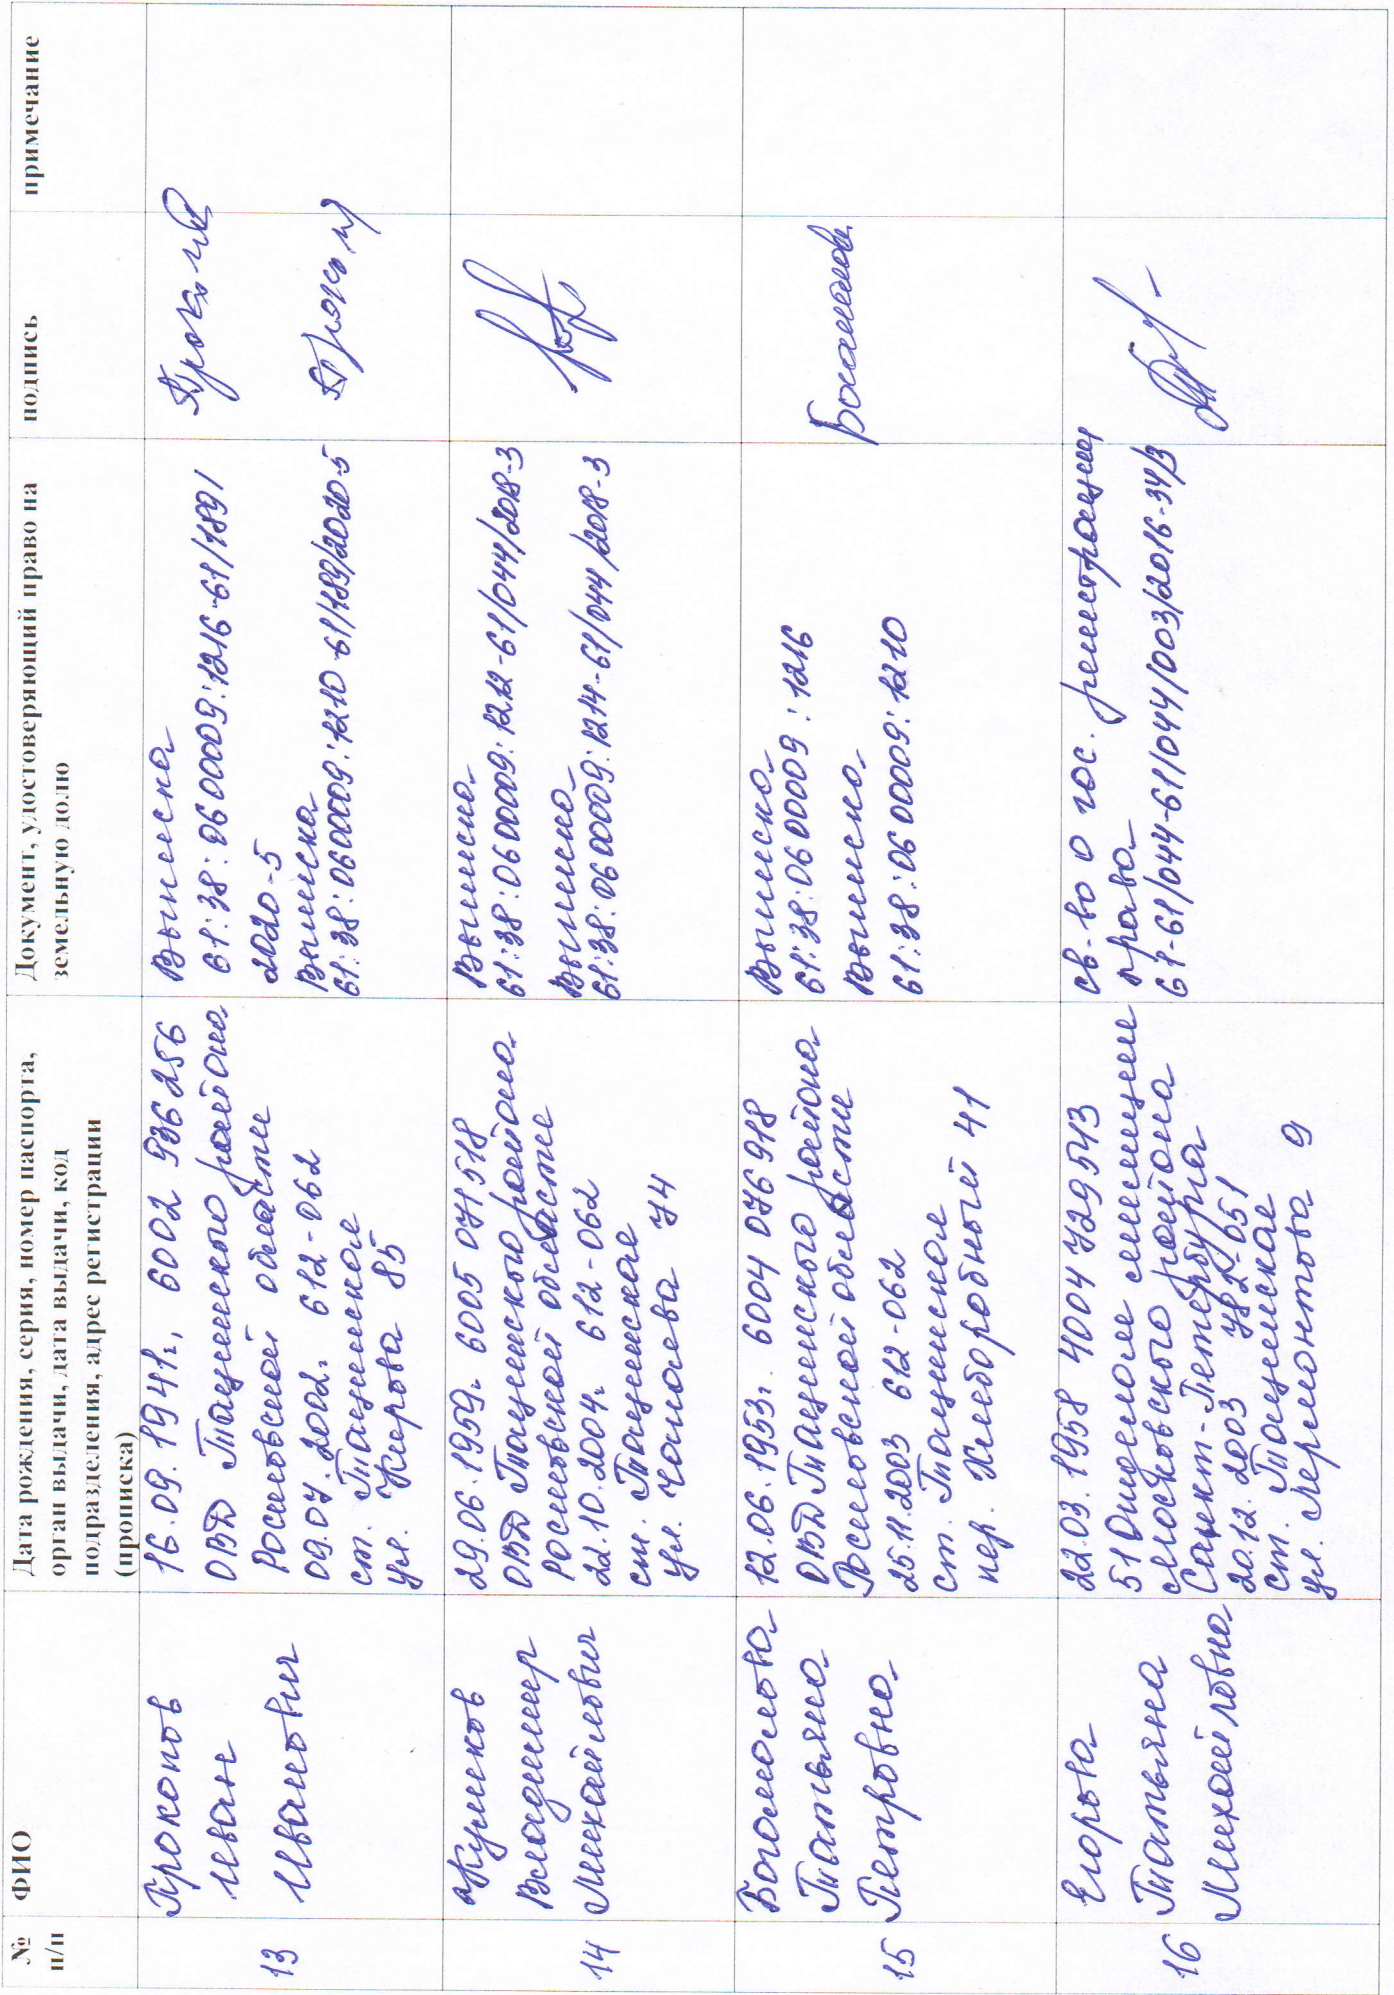 №
п/п
ФИО
Дата рождения, серия, номер паспорта,
орган выдачи, дата выдачи, код
подразделения, адрес регистрации
(прописка)
Документ, удостоверяющий право на
земельную долю
подпись
примечание
13
Прокопов
Иван
Иванович
16.09.1941г. 6002 936256
ОВД Тацинского района
Ростовской области
09.07.2002г 612-062
ст. Тацинская
ул. Кирова 85
Выписка
61:38:0600009:1216-61/189/
2020-5
Выписка
61:38:0600009:1210-61/189/2020-5
14
Куликов
Владимир
Михайлович
29.06.1959г 6005 071518
ОВД Тацинского района
Ростовской области
22.10.2004г 612-062
ст. Тацинская
ул. Чапаева 74
Выписка
61:38:0600009:1212-61/044/2018-3
Выписка
61:38:0600009:1214-61/044/2018-3
15
Богомолова
Татьяна
Петровна
12.06.1953г. 6004 076918
ОВД Тацинского района
Ростовской области
25.11.2003 612-062
ст. Тацинская
пер. Хлеборобный 41
Выписка
61:38:0600009:1216
Выписка
61:38:0600009:1210
16
Егорова
Татьяна
Михайловна
22.03.1958 4004 729543
51 Отделом милиции
Московского района
Санкт-Петербурга
20.12.2003 782-051
ст. Тацинская
ул. Лермонтова 9
св-во о гос. регистрации
права
61-61/044-61/044/003/2016-34/3